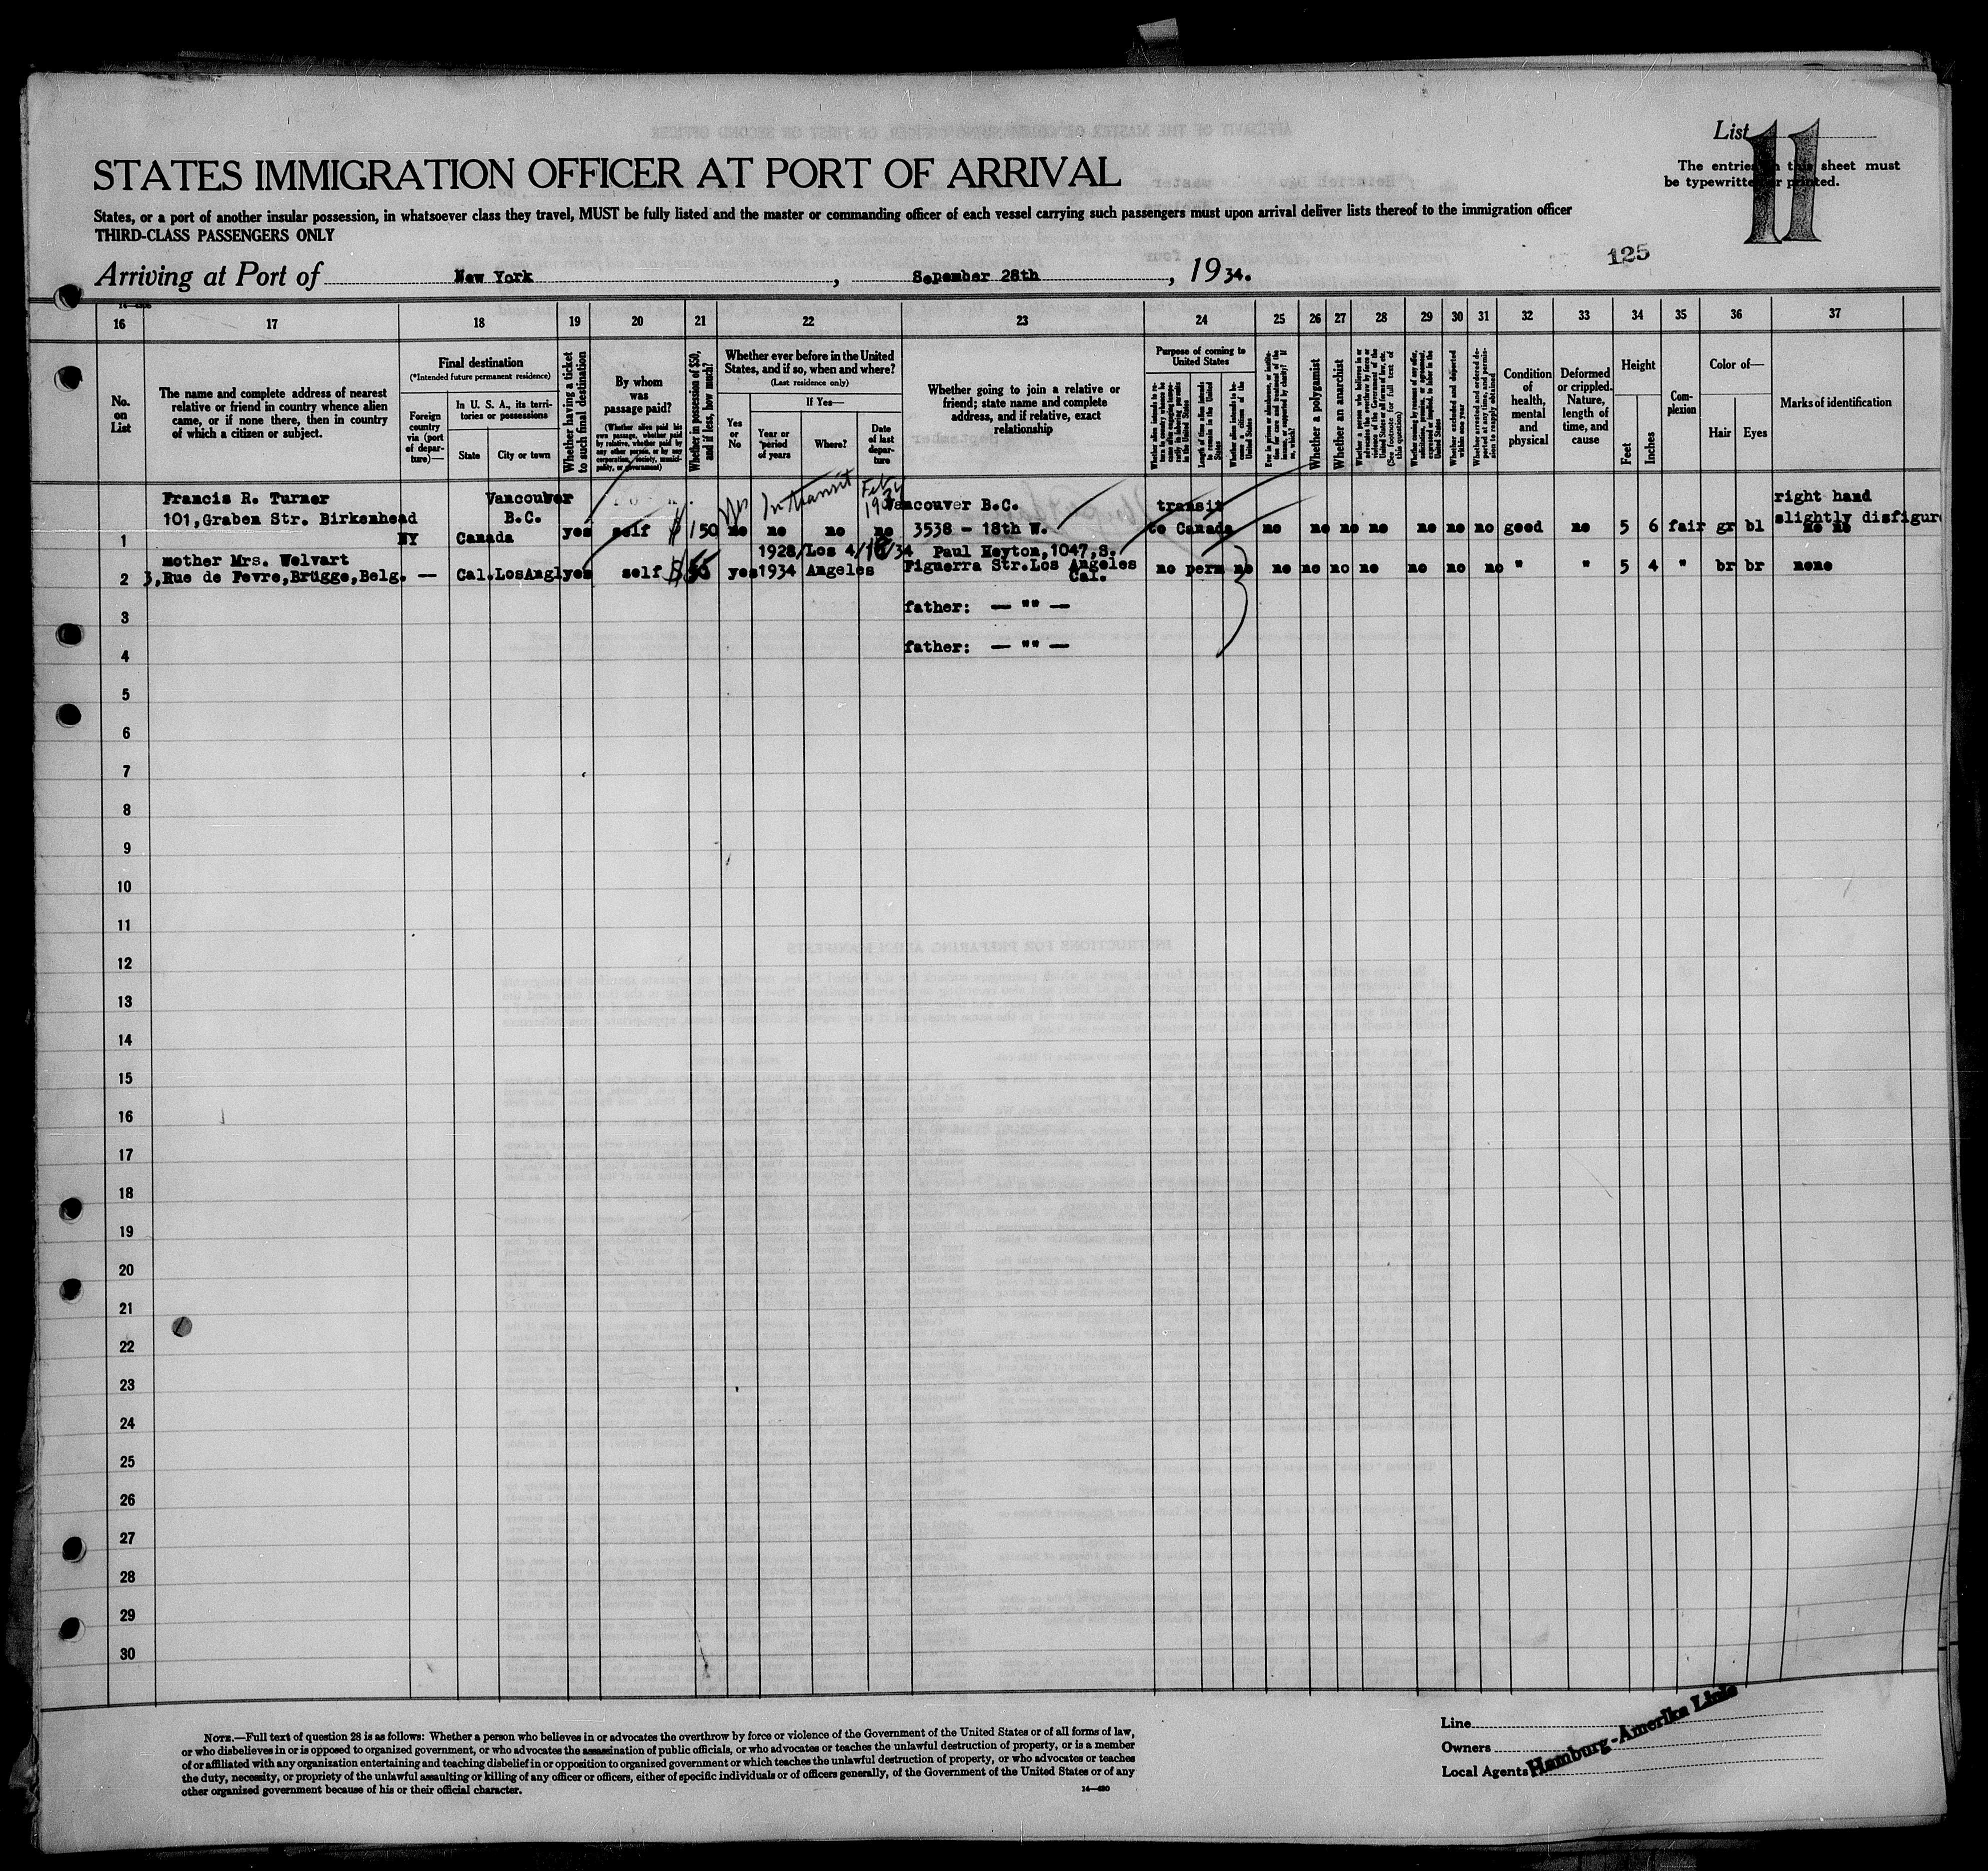 List 11
STATES IMMIGRATION OFFICER AT PORT OF ARRIVAL
The entries on this sheet must
be typewritten or printed.
States, or a port of another insular possession, in whatsoever class they travel, MUST be fully listed and the master or commanding officer of each vessel carrying such passengers must upon arrival deliver lists thereof to the immigration officer
THIRD-CLASS PASSENGERS ONLY
125
Arriving at Port of New York, Sepember 28th, 1934.
16 17 18 19 20 21 22 23 24 25 26 27 28 29 30 31 32 33 34 35 36 37
No. on List
The name and complete address of nearest
relative or friend in country whence alien
came, or if none there, then in country
of which a citizen or subject.
Final destination
(*Intended future permanent residence)
Foreign
country
via (port
of depar-
ture)—
In U. S. A., its terri-
tories or possessions
State
City or town
Whether having a ticket
to such final destination
By whom
was
passage paid?
(Whether alien paid his
own passage, whether paid
by relative, whether paid by
any other person, or by any
corporation, society, munici-
pality, or government)
Whether in possession of $50,
and if less, how much?
Whether ever before in the United
States, and if so, when and where?
(Last residence only)
Yes
or
No
If Yes—
Year or
period
of years
Where?
Date
of last
depar-
ture
Whether going to join a relative or
friend; state name and complete
address, and if relative, exact
relationship
Purpose of coming to
United States
Length of time alien intends
to remain in the United
States
Whether alien intends to be-
come a citizen of the
United States
Whether a polygamist
Whether an anarchist
Whether excluded and deported
within one year
Condition
of
health,
mental
and
physical
Deformed
or crippled.
Nature,
length of
time, and
cause
Height
Feet
Inches
Com-
plexion
Color of—
Hair
Eyes
Marks of identification
Francis R. Turner
101,Graben Str. Birkenhead
NY
Vancouver
B.C.
Canada
yes self $150
yes In transit Feb 193
no no no no
Vancouver B.C.
3538 - 18th W.
transit
to Canada
no no no no no no no good no 5 6 fair gr bl
right hand
slightly disfigur
no no
1
mother Mrs. Welvart
3,Rue de Fevre,Brügge,Belg. — Cal.LosAngl yes self $
2
1928/Los 4/18/34
yes 1934 Angeles
Paul Heyton,1047,S.
Figuerra Str.Los Angeles
Cal.
no perm no no no no no no no no " " 5 4 " br br none
3 father: — "" —
4 father: — "" —
5
6
7
8
9
10
11
12
13
14
15
16
17
18
19
20
21
22
23
24
25
26
27
28
29
30
NOTE.—Full text of question 28 is as follows: Whether a person who believes in or advocates the overthrow by force or violence of the Government of the United States or of all forms of law,
or who disbelieves in or is opposed to organized government, or who advocates the assassination of public officials, or who advocates or teaches the unlawful destruction of property, or is a member
of or affiliated with any organization entertaining and teaching disbelief in or opposition to organized government or which teaches the unlawful destruction of property, or who advocates or teaches
the duty, necessity, or propriety of the unlawful assaulting or killing of any officer or officers, either of specific individuals or of officers generally, of the Government of the United States or of any
other organized government because of his or their official character.
14—430
Line
Owners
Local Agents
Hamburg-Amerika Linie